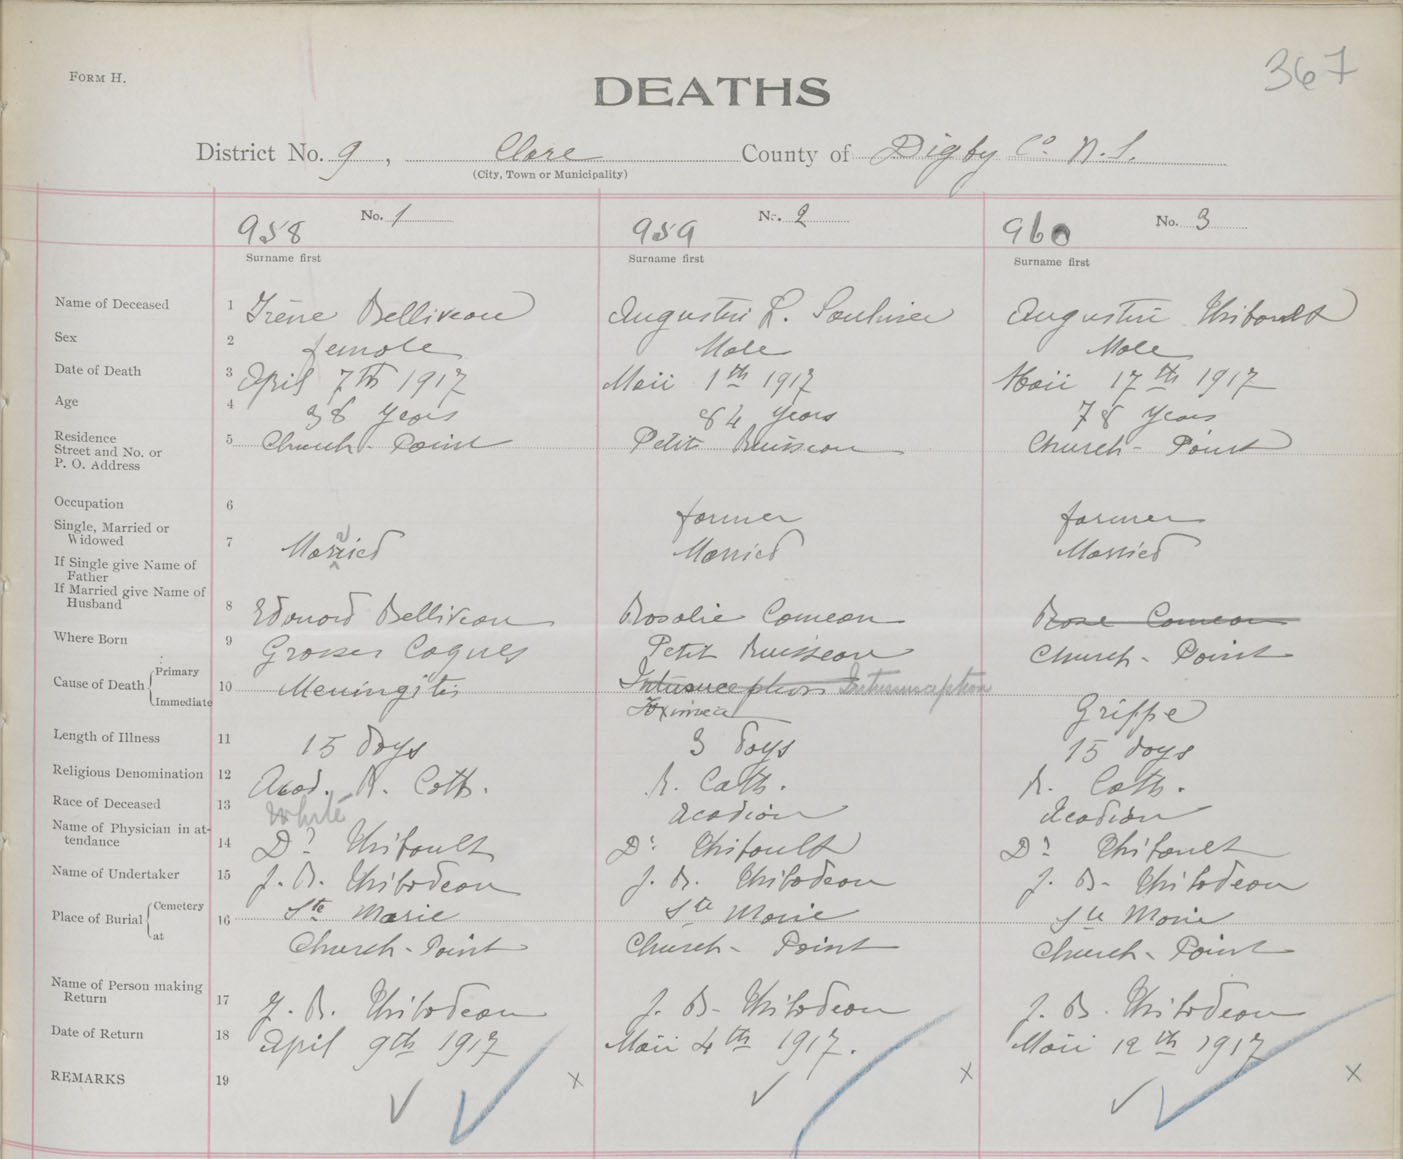 367
FORM H.
DEATHS
District No. 9, Clare County of Digby Co. N.S.
(City, Town or Municipality)
No. 1 No. 2 No. 3
958 959 960
Surname first Surname first Surname first
Name of Deceased 1 Irène Belliveau Augustin L. Saulnier Augustin Thibault
Sex 2 female Male Male
Date of Death 3 April 7th 1917 Maii 1th 1917 Maii 17th 1917
Age 4 38 years 84 years 78 years
Residence Street and No. or P. O. Address 5 Church-Point Petit Ruisseau Church-Point
Occupation 6 farmer farmer
Single, Married or Widowed 7 Married Married Married
If Single give Name of Father
If Married give Name of Husband 8 Edouard Belliveau Rosalie Comeau Rose Comeau
Where Born 9 Grosses Coques Petit Ruisseau Church-Point
Cause of Death Primary 10 Meningitis Intussuception Intussusception
Immediate Toximea Grippe
Length of Illness 11 15 days 3 days 15 days
Religious Denomination 12 Acad. R. Cath. R. Cath. R. Cath.
Race of Deceased 13 White Acadian Acadian
Name of Physician in attendance 14 Dr Thibault Dr Thibault Dr Thibault
Name of Undertaker 15 J. B. Thibodeau J. B. Thibodeau J. B. Thibodeau
Place of Burial Cemetery 16 Ste Marie Ste Marie Ste Marie
at Church-Point Church-Point Church-Point
Name of Person making Return 17 J. B. Thibodeau J. B. Thibodeau J. B. Thibodeau
Date of Return 18 April 9th 1917 Maii 4th 1917. Maii 12th 1917
REMARKS 19 x x x